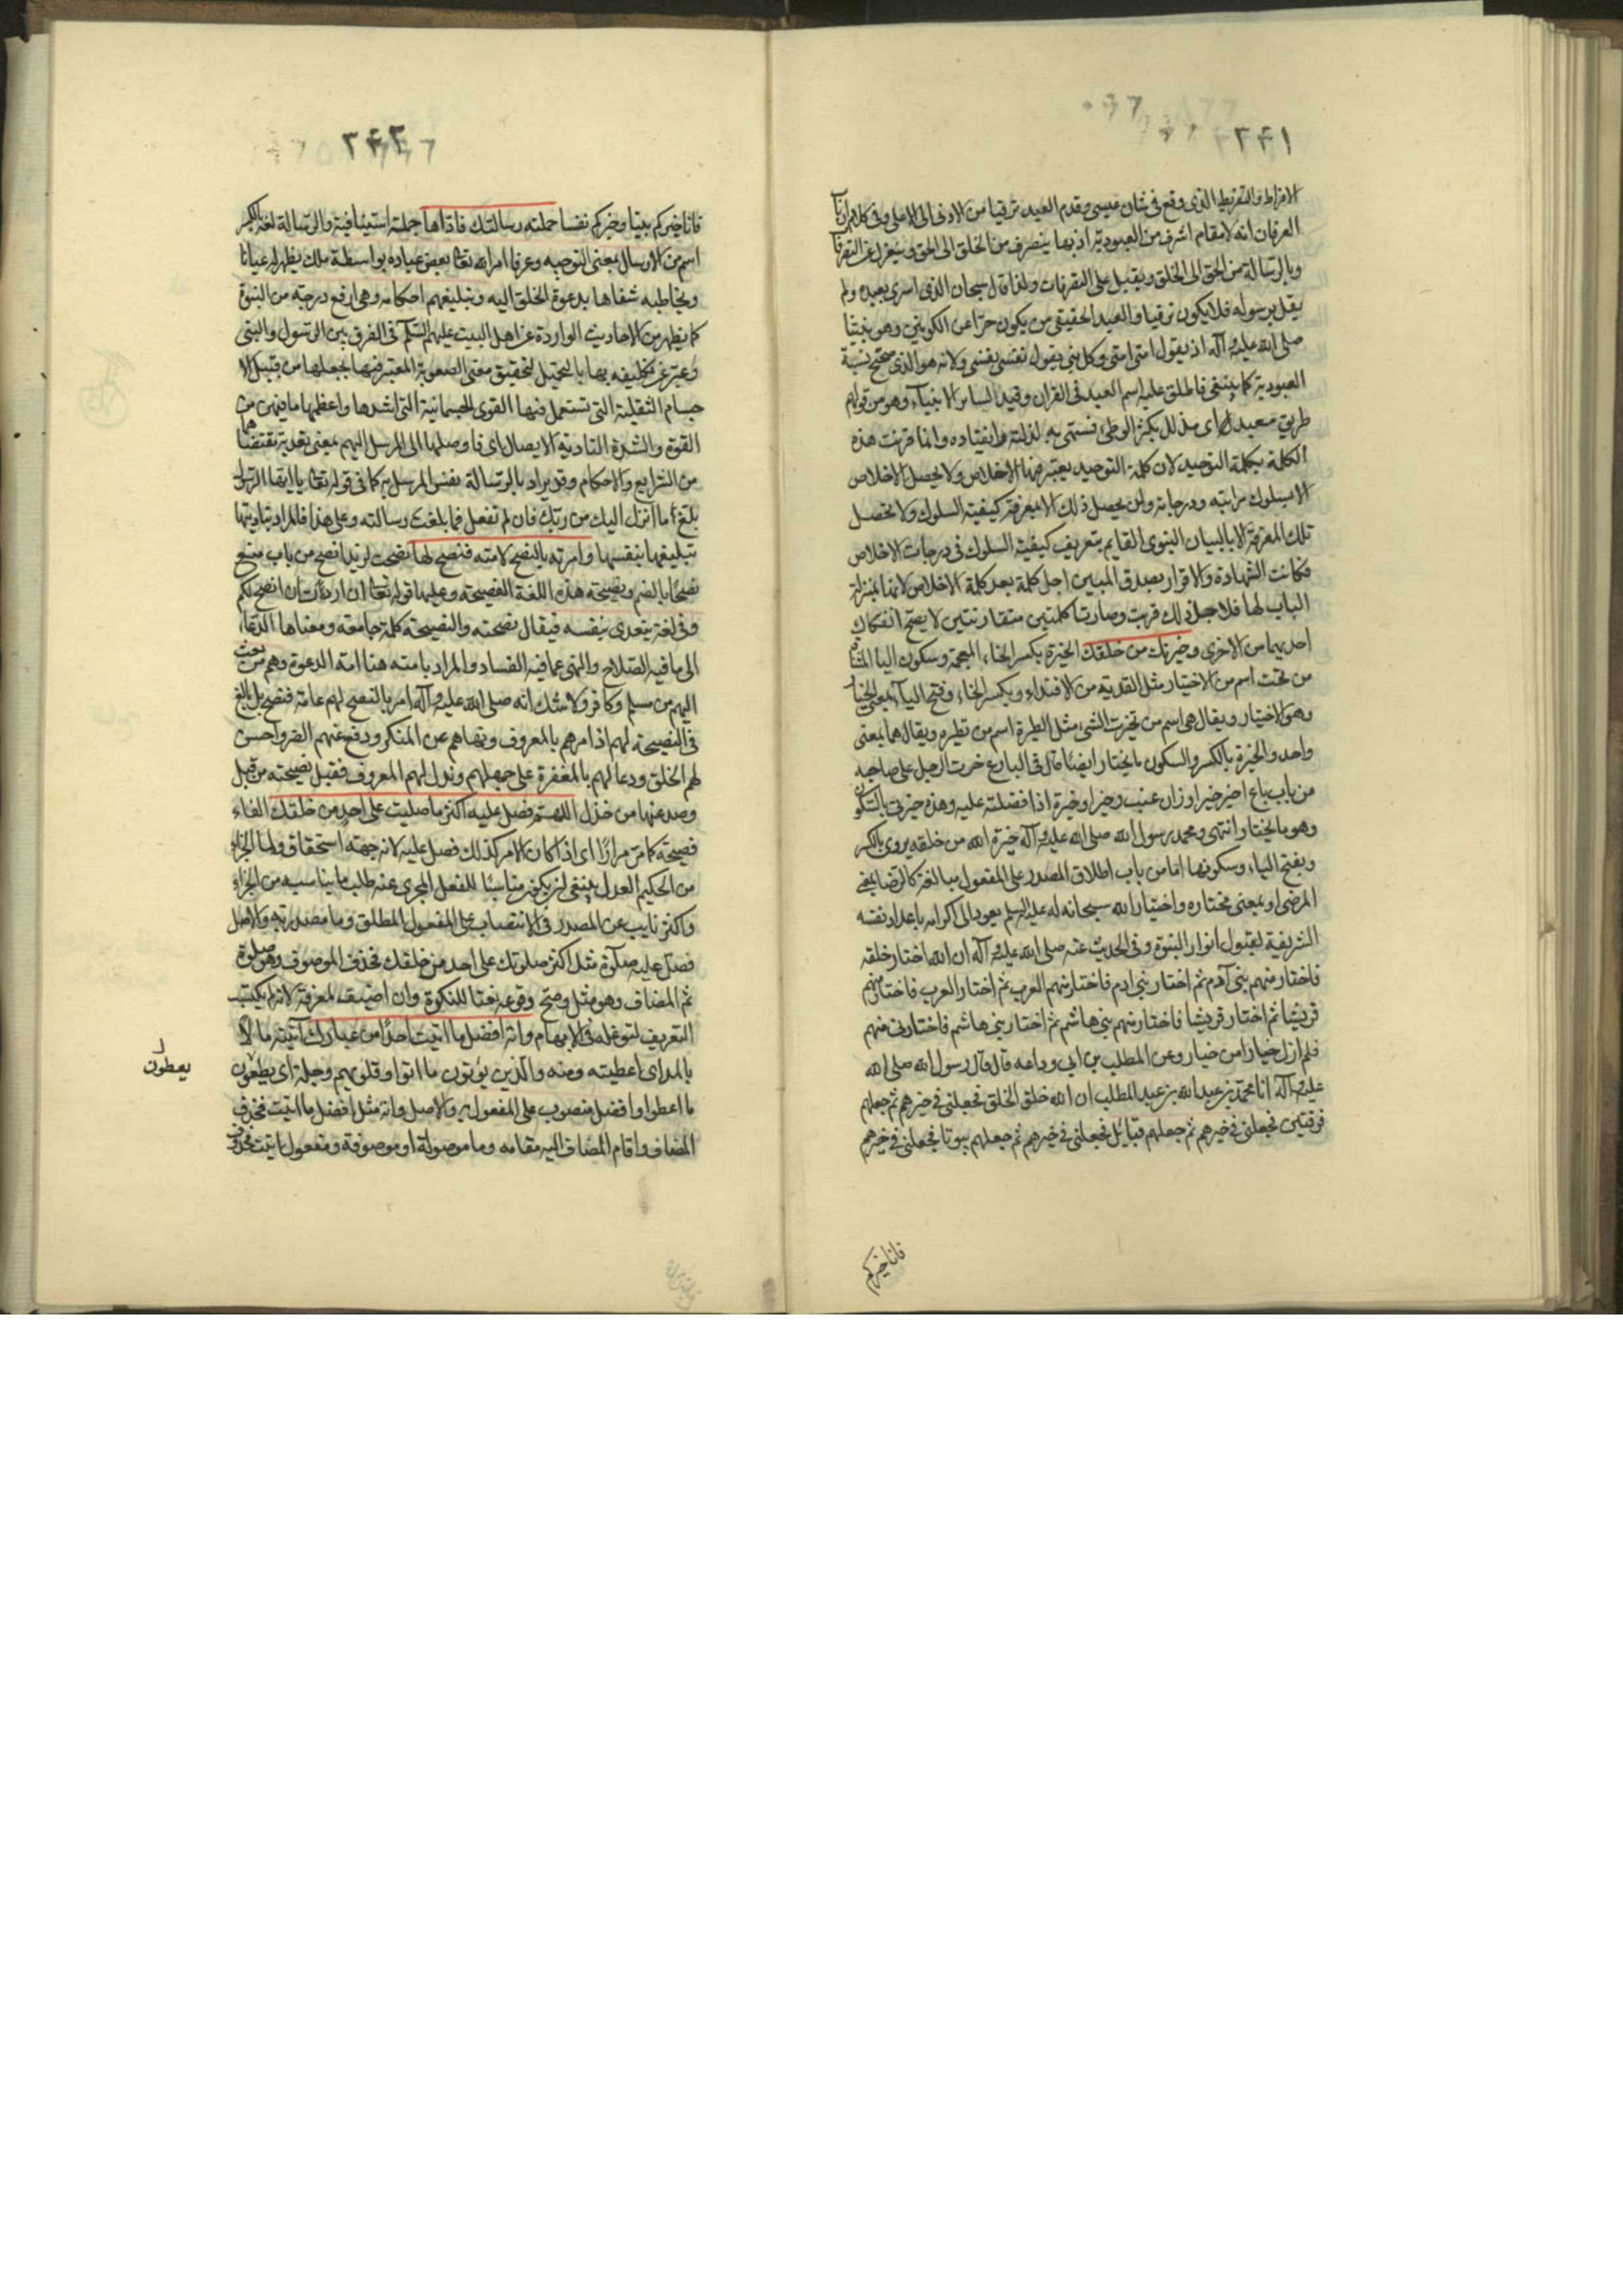 ۲۴۱
الافراط والتفريط الذى وقع فى شان عيسى وقدم العبد ترقيا من الادنى الى الاعلى وفى كلام ارباب
العرفان انه لا مقام اشرف من العبودية اذ بها ينصرف من الخلق الى الحق وينعزل عن التصرفات
وبالرسالة من الحق الى الخلق ويقبل على التصرفات ولذا قال سبحان الذى اسرى بعبده ولم
يقل برسوله فلا يكون ترقيا والعبد الحقيقى من يكون حرا عن الكونين وهو نبينا
صلى الله عليه وآله اذ يقول امتى امتى وكل نبى يقول نفسى نفسى ولانه هو الذى صحح نسبة
العبودية كما ينبغى فاطلق عليه اسم العبد فى القران وقيد لسائر الانبياء وهو من قولهم
طريق معبد اى مذلل بكثرة الوطئ فسمى به لذلته وانقياده وانما قرنت هذه
الكلمة بكلمة التوحيد لان كلمة التوحيد يعتبر فيها الاخلاص ولا يحصل الاخلاص
الا بسلوك مراتبه ودرجاته ولن يحصل ذلك الا بمعرفة كيفية السلوك ولا تحصل
تلك المعرفة الا بالبيان النبوى القايم بتعريف كيفية السلوك فى درجات الاخلاص
فكانت الشهادة والاقرار بصدق المبين اجل كلمة بعد كلمة الاخلاص لانها بمنزلة
الباب لها فلاجل ذلك قرنت وصارتا كلمتين متقارنتين لا يصح انفكاك
احديهما من الاخرى وخيرتك من خلقك الخيرة بكسر الخاء المعجمة وسكون اليا المثناة
من تحت اسم من الاختيار مثل الفدية من الافتداء وبكسر الخاء وفتح الياء بمعنى الخيار
وهو الاختيار ويقال هى اسم من تخيرت الشئ مثل الطيرة اسم من تطير ويقال هما بمعنى
واحد والخيرة بالكسر والسكون ما يختار ايضا قال فى البارع خرت الرجل على صاحبه
من باب باع اخير خيرا وزان عنب وخيرا وخيرة اذا فضلته عليه وهذه خيرتى بالسكون
وهو ما يختار انتهى ومحمد رسول الله صلى الله عليه وآله خيرة الله من خلقه يروى بالكسر
وبفتح الياء وسكونها اما من باب اطلاق المصدر على المفعول مبالغة كالرضا بمعنى
المرضى او بمعنى مختاره واختيار الله سبحانه له عليه السلم يعود الى اكرامه باعداد نفسه
الشريفة لقبول انوار النبوة وفى الحديث عنه صلى الله عليه وآله ان الله اختار خلقه
فاختار منهم بنى آدم ثم اختار بنى ادم فاختار منهم العرب ثم اختار العرب فاختار منهم
قريشا ثم اختار قريشا فاختار منهم بنى هاشم ثم اختار بنى هاشم فاختارنى منهم
فلم ازل خيارا من خيار وعن المطلب بن ابى وداعه قال قال رسول الله صلى الله
عليه وآله انا محمد بن عبد الله بن عبد المطلب ان الله خلق الخلق فجعلنى فى خيرهم ثم جعلهم
فرقتين فجعلنى فى خيرهم ثم جعلهم قبائل فجعلنى فى خيرهم ثم جعلهم بيوتا فجعلنى فى خيرهم
فانا خيركم
۲۴۲
فانا خيركم بيتا وخيركم نفسا حملته رسالتك فاداها جملة استينافية والرسالة لغة بالكسر
اسم من الارسال بمعنى التوجيه وعرفا امر الله تعالى بعض عباده بواسطة ملك يظهر له عيانا
ويخاطبه شفاها بدعوة الخلق اليه وتبليغهم احكامه وهى ارفع درجة من النبوة
كما يظهر من الاحاديث الواردة عن اهل البيت عليهم السلم فى الفرق بين الرسول والنبى
وعبر عن تكليفه بها بالتحميل لتحقيق معنى الصعوبة المعتبر فيها بجعلها من قبيل الا
جسام الثقيلة التى تستعمل فيها القوى الجسمانية التى اشدها واعظمها ما فيهن من
القوة والشدة التادية الايصال اى فاوصلها الى المرسل اليهم بمعنى تعديه بمقتضاها
من الشرايع والاحكام وقد يراد بالرسالة نفس المرسل به كما فى قوله تعالى يا ايها الرسول
بلغ ما انزل اليك من ربك فان لم تفعل فما بلغت رسالته وعلى هذا فالمراد بتاديتها
تبليغها بنفسها وامرته بالنصح لامته فنصح لها نصحت لزيد انصح من باب منع
نصحا بالضم ونصيحة هذه اللغة الفصيحة وعليها قوله تعالى ان اردت ان انصح لكم
وفى لغة يتعدى بنفسه فيقال نصحته والنصيحة كلمة جامعة ومعناها الدعاء
الى ما فيه الصلاح والنهى عما فيه الفساد والمراد بامته هنا امة الدعوة وهم من بعث
اليهم من مسلم وكافر ولا شك انه صلى الله عليه وآله امر بالنصح لهم عامة فنصح بل بالغ
فى النصيحة لهم اذ امرهم بالمعروف ونهاهم عن المنكر ودفع عنهم الضر واحسن
لهم الخلق ودعا لهم بالمغفرة على جهلهم وبذل لهم المعروف فقبل نصيحته من قبل
وصد عنها من خذل اللهم فصل عليه اكثر ما صليت على احد من خلقك الفاء
فصيحة كما مر مرارا اى اذا كان الامر كذلك فصل عليه لانه جهة استحقاق ولما الجزاء
من الحكيم العدل ينبغى ان يكون مناسبا للفعل المجزى عنه طلب ما يناسبه من الجزاء
واكثر نايب عن المصدر فى الانتصاب على المفعول المطلق وما مصدرية والاصل
فصل عليه صلوة مثل اكثر صلوتك على احد من خلقك فحذف الموصوف وهو صلوة
ثم المضاف وهو مثل وصح وقوعه نعتا للنكرة وان اضيف لمعرفة لانه لم يكتسب
التعريف لتوغله فى الابهام وآته افضل ما اتيت احدا من عبادك آتيته مالا
بالمد اى اعطيته ومنه والذين يؤتون ما اتوا وقلوبهم وجلة اى يعطون
ما اعطوا وافضل منصوب على المفعول به والاصل وآته مثل افضل ما اتيت فحذف
المضاف واقام المضاف اليه مقامه وما موصولة او موصوفة ومفعول اتيت محذوف
يعطون